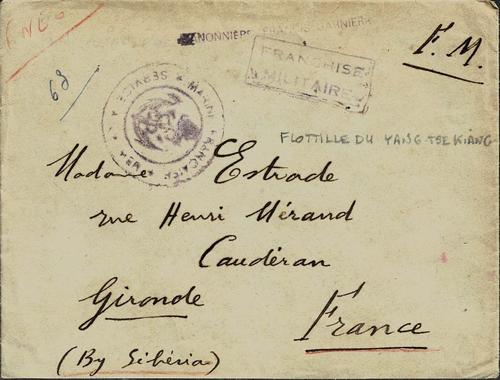 CANONNIÈRE FRANCIS GARNIER
F. M.
FRANCHISE
MILITAIRE
68
MARINE FRANÇAISE
SERVICE A LA MER
FLOTTILLE DU YANG TSE KIANG
Madame Estrade
rue Henri Mérand
Caudéran
Gironde
France
(By Sibéria)